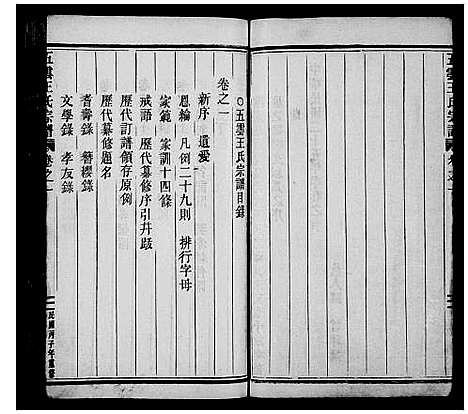 五雲王氏宗譜
〇五雲王氏宗譜目錄
卷之一
新序　遺愛
恩綸　凡例二十九則　排行字母
家範　家訓十四條
戒語　歷代纂修序引幷跋
歷代訂譜領存原例
歷代纂修題名
耆壽錄　簪纓錄
文學錄　孝友錄
五雲王氏宗譜　卷之一